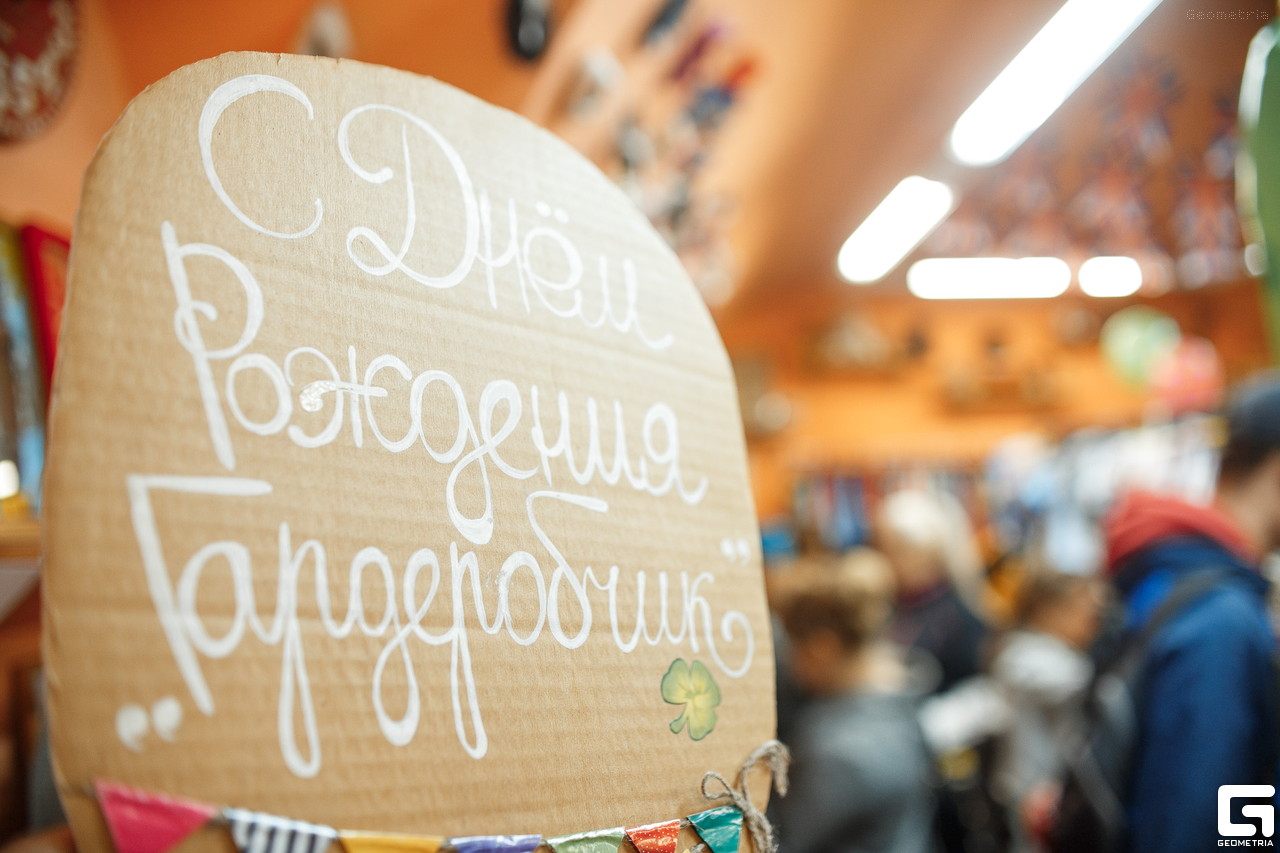 Geometria
С Днём
Рождения
„Гардеробчик“
GEOMETRIA